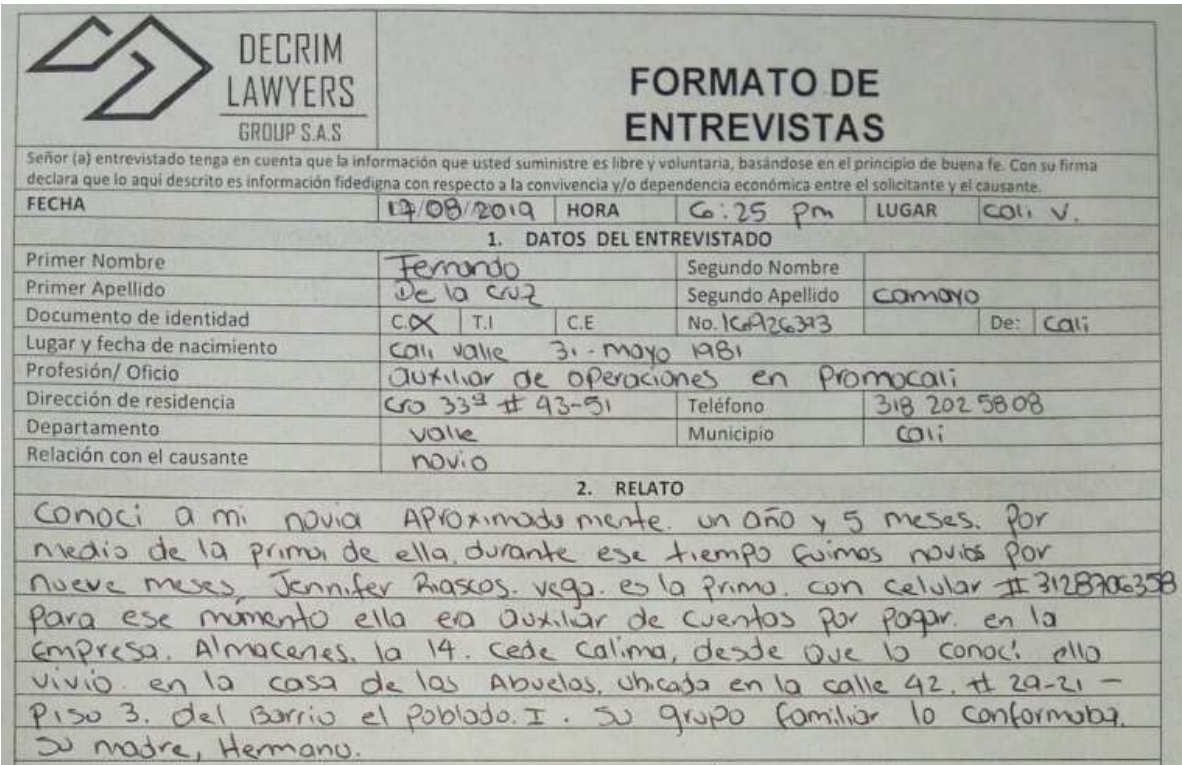 DECRIM
LAWYERS
GROUP S.A.S
FORMATO DE
ENTREVISTAS
Señor (a) entrevistado tenga en cuenta que la información que usted suministre es libre y voluntaria, basándose en el principio de buena fe. Con su firma
declara que lo aquí descrito es información fidedigna con respecto a la convivencia y/o dependencia económica entre el solicitante y el causante.
FECHA 17/08/2019 HORA 6:25 pm LUGAR Cali V.
1. DATOS DEL ENTREVISTADO
Primer Nombre Fernando Segundo Nombre
Primer Apellido De la cruz Segundo Apellido camayo
Documento de identidad C.C T.I C.E No. De: Cali
Lugar y fecha de nacimiento Cali valle 31 - mayo 1981
Profesión/ Oficio auxiliar de operaciones en Promocali
Dirección de residencia cra 33 # 43-51 Teléfono 318 202 5808
Departamento valle Municipio Cali
Relación con el causante novio
2. RELATO
Conoci a mi novia Aproximadamente. un año y 5 meses. Por
medio de la prima de ella, durante ese tiempo fuimos novios por
nueve meses, Jennifer Riascos. vega. es la Prima. con celular # 3128706358
para ese momento ella era auxiliar de cuentas por pagar. en la
empresa. Almacenes. la 14. cede Calima, desde que la conoci ella
vivio. en la casa de los Abuelos. ubicada en la calle 42. # 29-21 -
Piso 3. del Barrio el Poblado. I. su grupo familiar lo conformaba.
su madre, Hermano.